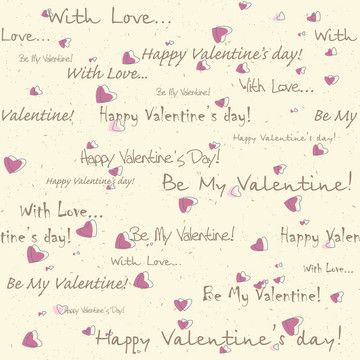 With Love...
Love... Happy Valentine's day! With
Be My Valentine!
With Love...
With Love...
Be My Valentine!
Valentine! Happy Valentine's day! Be My
Happy Valentine's day!
Happy Valentine's Day!
Happy Valentine's day! Be My Valentine!
With Love...
tine's day! Be My Valentine! Happy Valen
With Love...
With Love...
Be My Valentine!
Be My Valentine!
Happy Valentine's Day!
Happy Valentine's day!